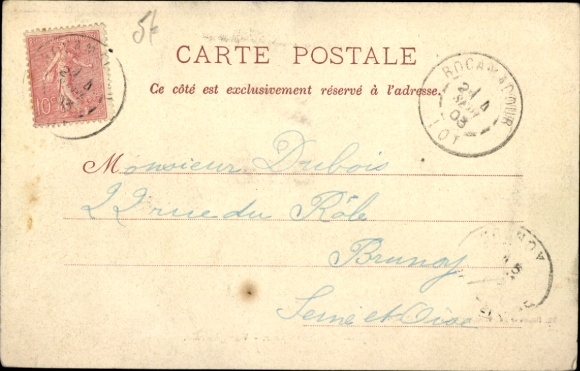 5f
CARTE POSTALE
Ce côté est exclusivement réservé à l'adresse.
10c
ROCAMADOUR
21
SEPT
03
LOT
Monsieur Dubois
22 rue du Rôle
Brunoy
Seine et Oise